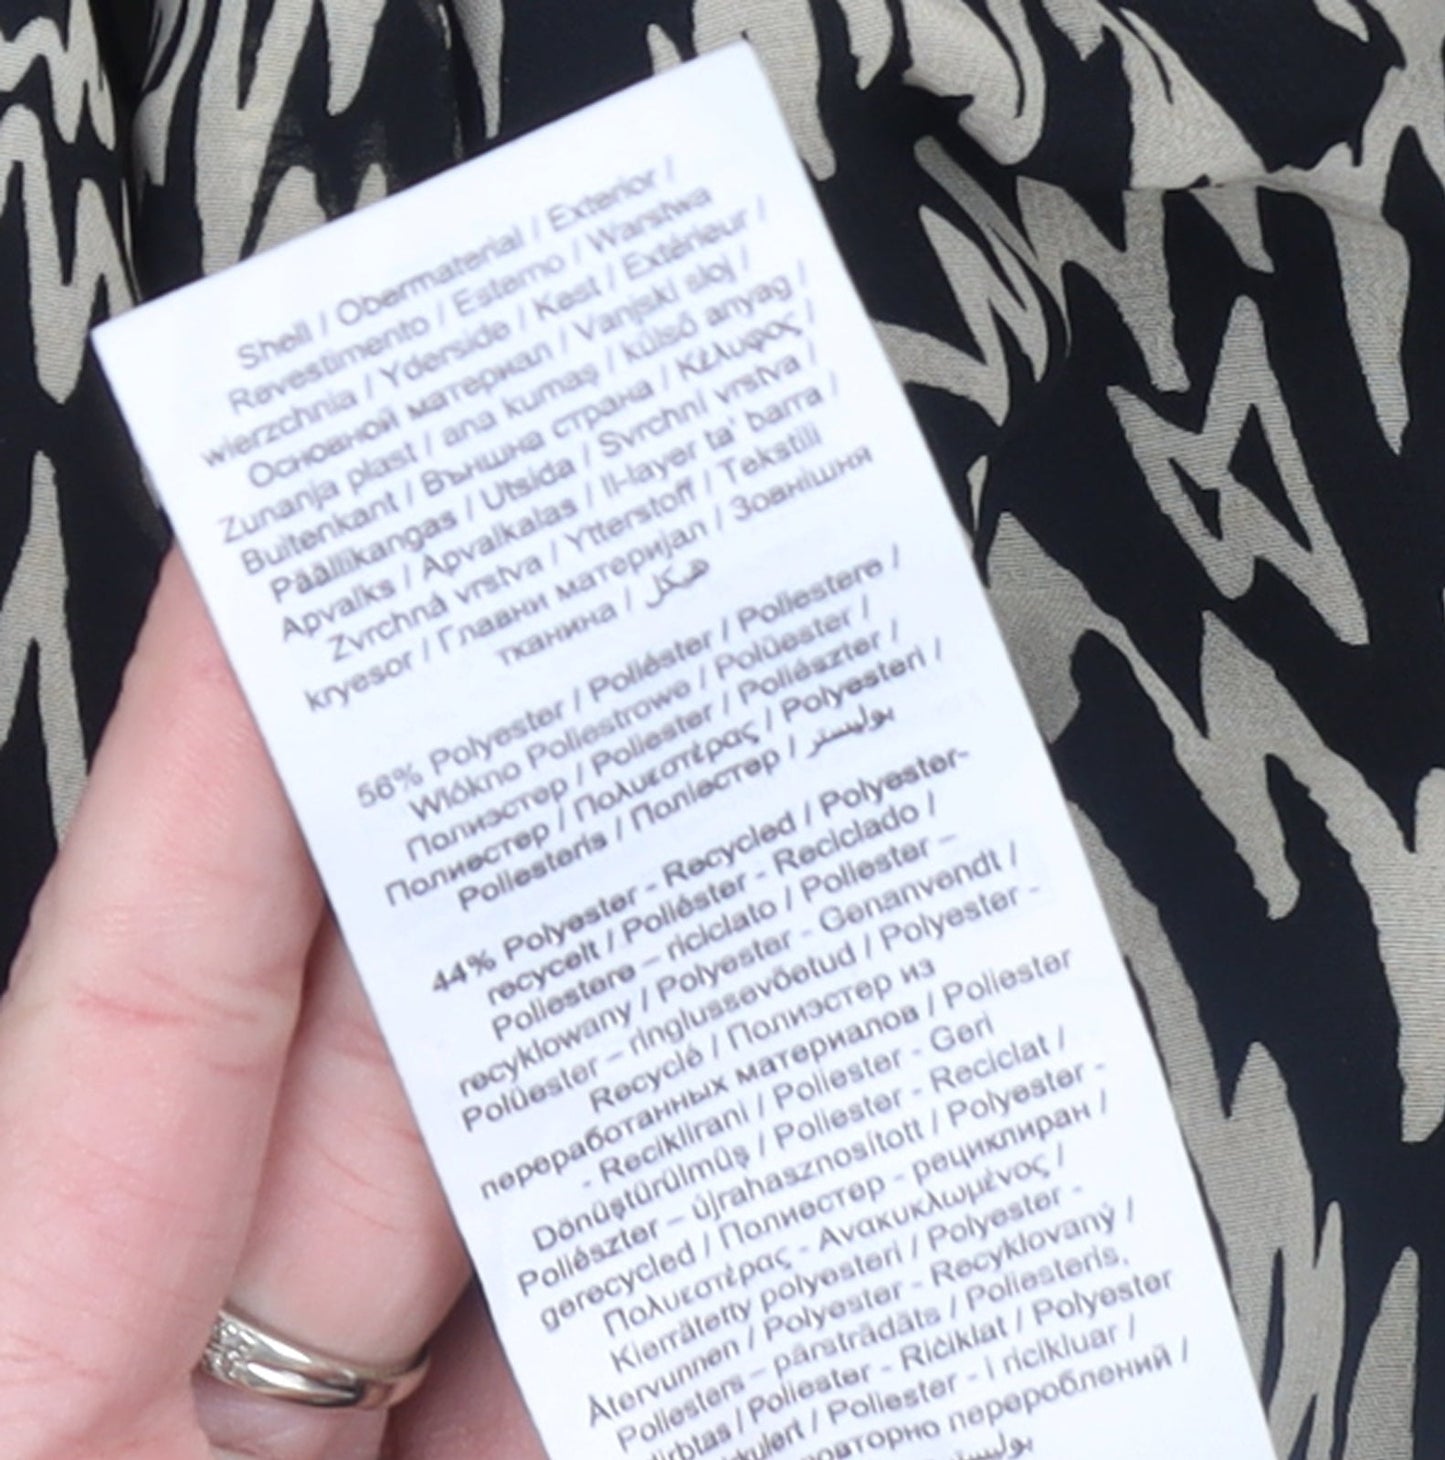 Shell / Obermaterial / Exterior /
Revestimento / Esterno / Warstwa
wierzchnia / Yderside / Kest / Extérieur /
Основной материал / Vanjski sloj /
Zunanja plast / ana kumaş / külső anyag /
Buitenkant / Външна страна / Κέλυφος /
Päällikangas / Utsida / Svrchní vrstva /
Apvalks / Apvalkalas / Il-layer ta' barra /
Zvrchná vrstva / Ytterstoff / Tekstili
kryesor / Главни материјал / Зовнішня
тканина / هيكل
56% Polyester / Poliéster / Poliestere /
Wlókno Poliestrowe / Polüester /
Полиэстер / Poliester / Poliészter /
Полиестер / Πολυεστέρας / Polyesteri /
Poliesteris / Поліестер / بوليستر
44% Polyester - Recycled / Polyester-
recycelt / Poliéster - Reciclado /
Poliestere – riciclato / Poliester –
recyklowany / Polyester - Genanvendt /
Polüester – ringlussevõetud / Polyester -
Recyclé / Полиэстер из
переработанных материалов / Poliester
- Reciklirani / Poliester - Geri
Dönüştürülmüş / Poliester - Reciclat /
Poliészter – újrahasznosított / Polyester -
gerecycled / Полиестер - рециклиран /
Πολυεστέρας - Ανακυκλωμένος /
Kierrätetty polyesteri / Polyester -
Återvunnen / Polyester - Recyklovaný /
Poliesters – pārstrādāts / Poliesteris,
/ Poliester - Riċiklat / Polyester
/ Poliester - i ricikluar /
перероблений /